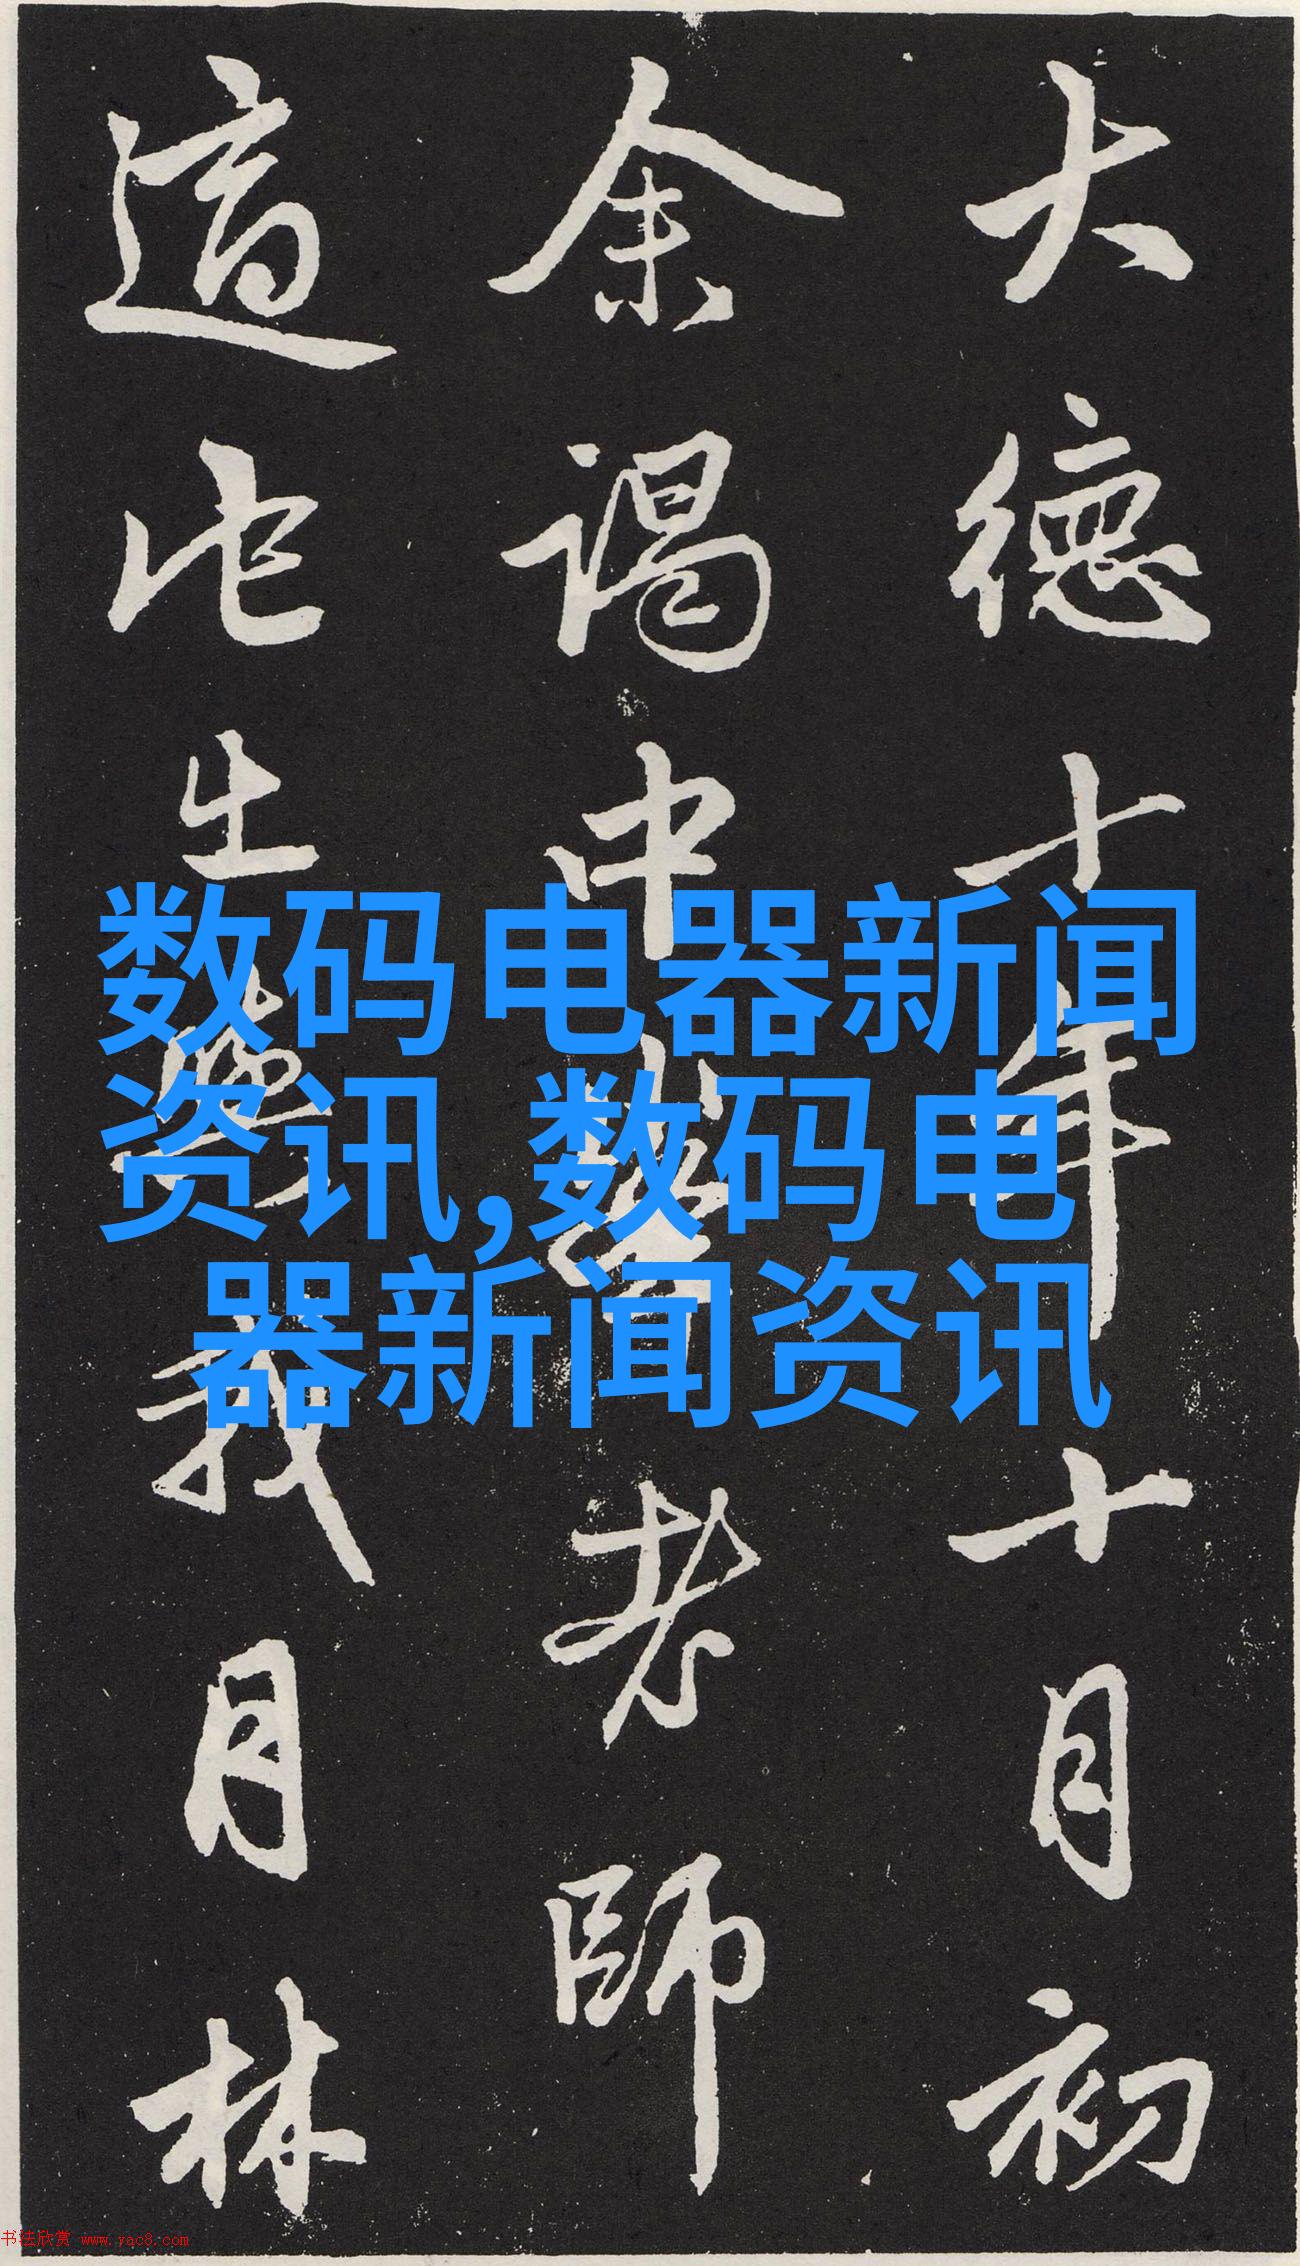 大德十年十月初
余謁中峯老師
此出我月林
数码电器新闻
资讯,数码电
器新闻资讯
书法欣赏 www.yac8.com